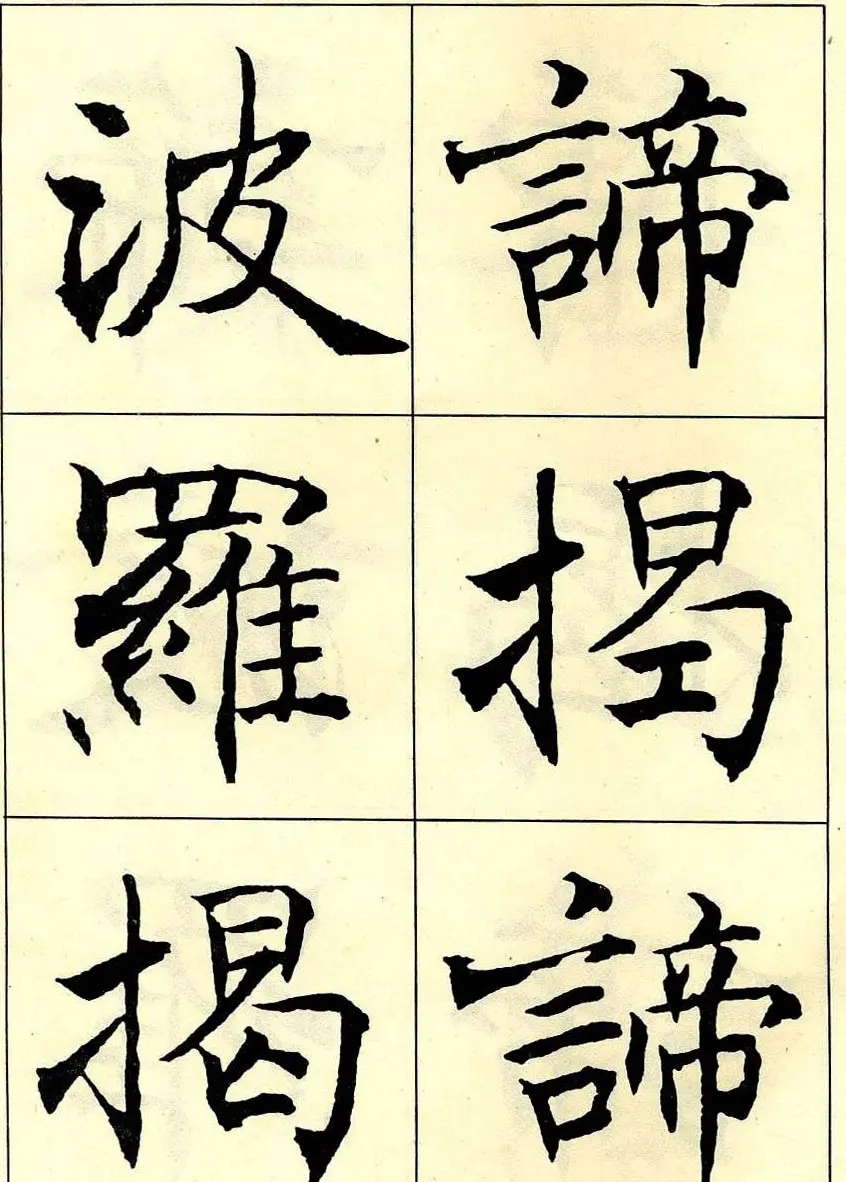 諦揭諦
波羅揭